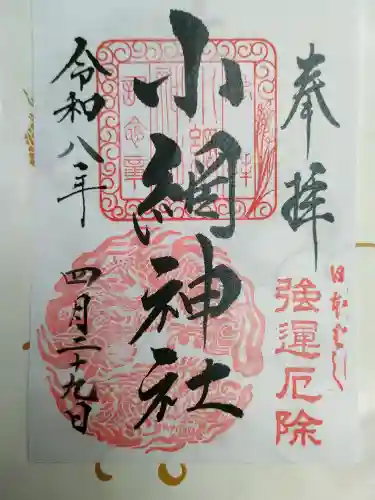 奉拝
日本ばし
強運厄除
小網神社
令和八年
四月二十九日